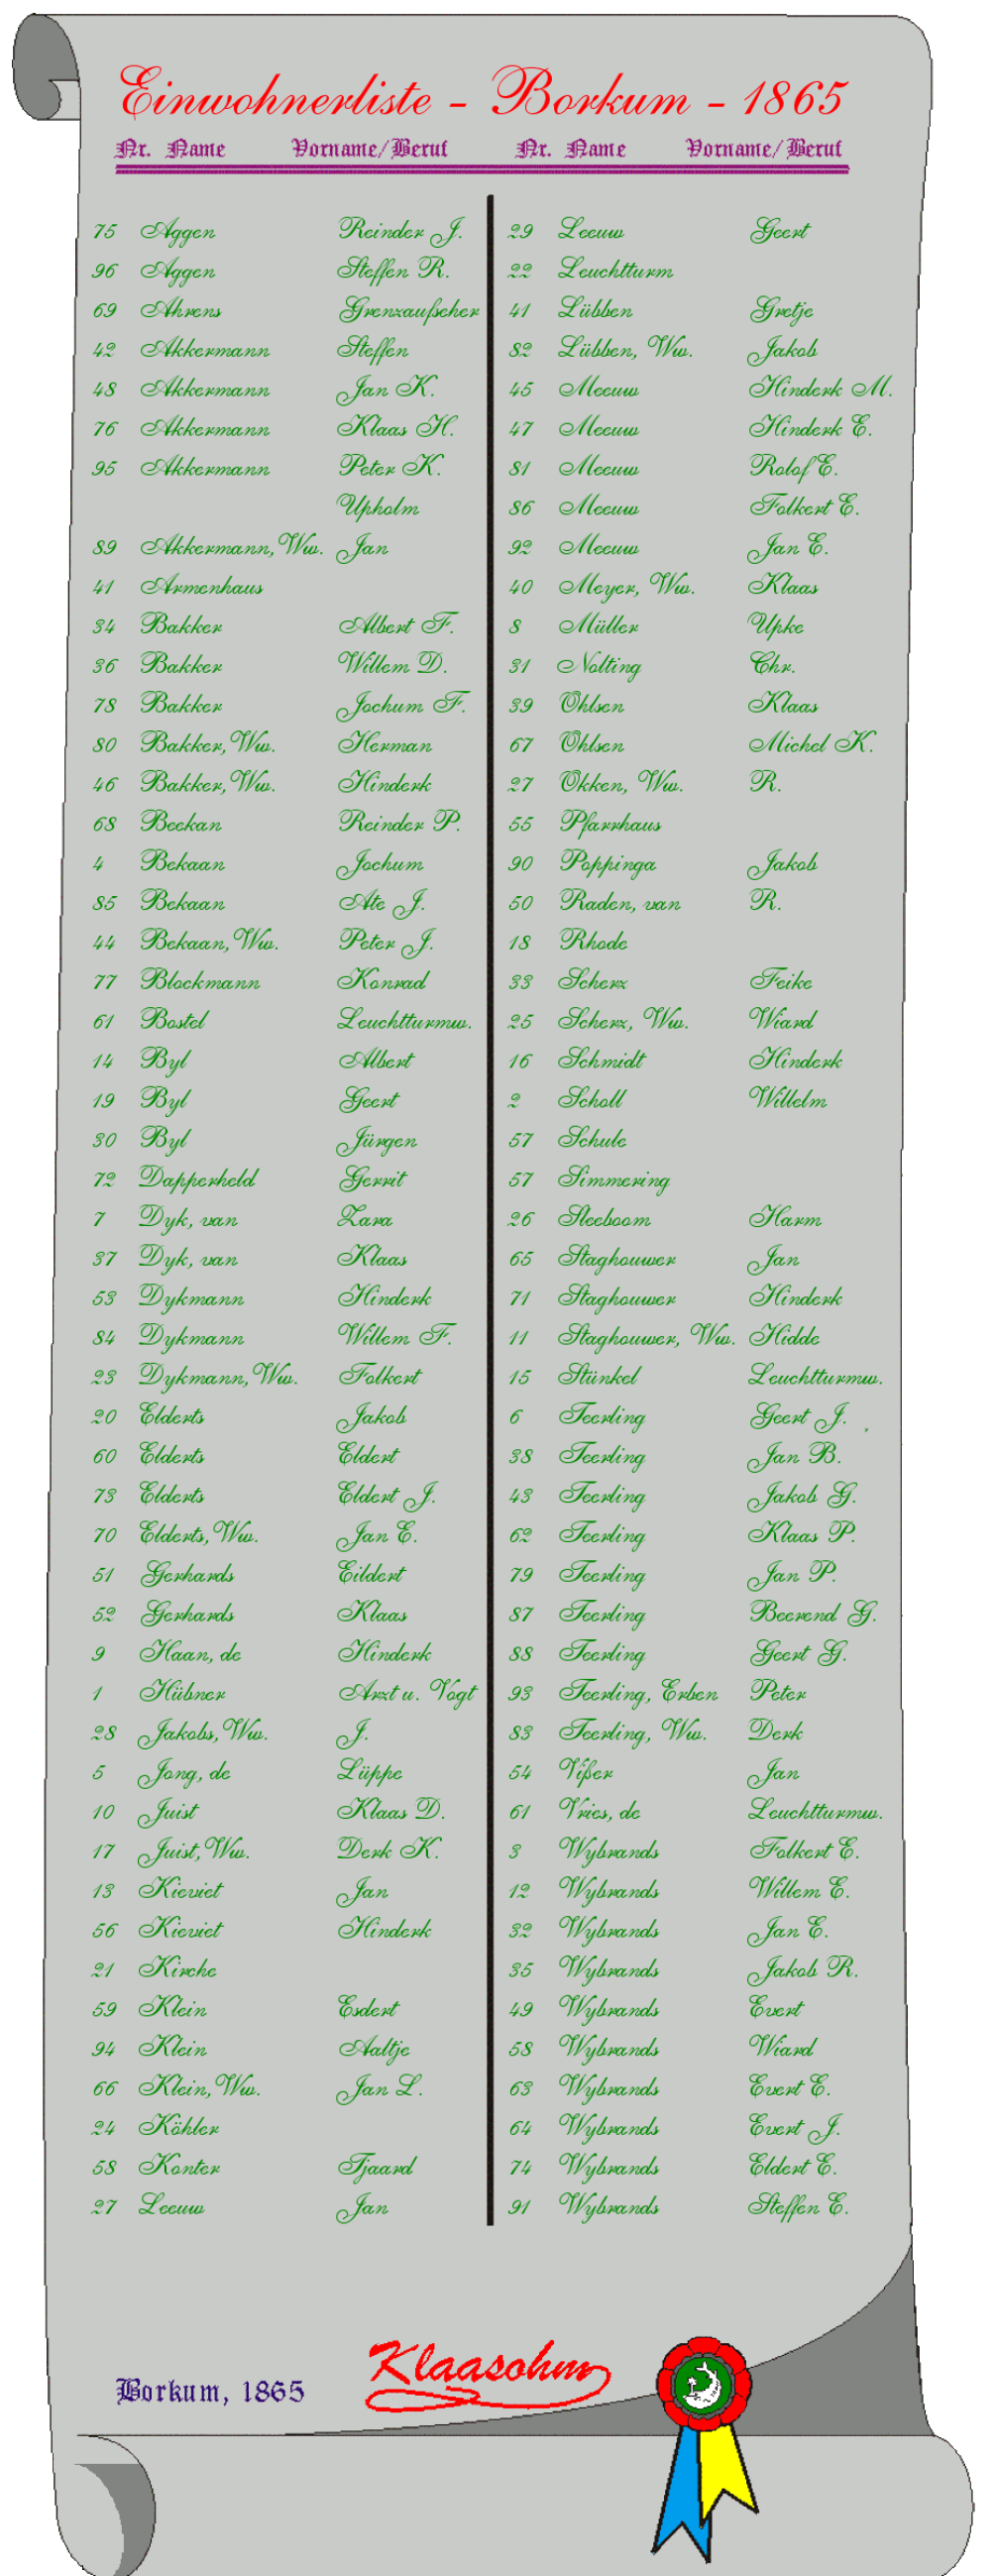 Einwohnerliste - Borkum - 1865
Nr. Name Vorname/Beruf Nr. Name Vorname/Beruf
75 Aggen Reinder J.
96 Aggen Steffen R.
69 Ahrens Grenzaufseher
42 Akkermann Steffen
48 Akkermann Jan K.
76 Akkermann Klaas H.
95 Akkermann Peter K.
Upholm
89 Akkermann, Ww. Jan
41 Armenhaus
34 Bakker Albert F.
36 Bakker Willem D.
78 Bakker Jochum F.
80 Bakker, Ww. Herman
46 Bakker, Ww. Hinderk
68 Beekan Reinder P.
4 Bekaan Jochum
85 Bekaan Ate J.
44 Bekaan, Ww. Peter J.
77 Blockmann Konrad
61 Bostel Leuchtturmw.
14 Byl Albert
19 Byl Geert
30 Byl Jürgen
72 Dapperheld Gerrit
7 Dyk, van Zara
37 Dyk, van Klaas
53 Dykmann Hinderk
84 Dykmann Willem F.
23 Dykmann, Ww. Folkert
20 Elderts Jakob
60 Elderts Eldert
73 Elderts Eldert J.
70 Elderts, Ww. Jan E.
51 Gerhards Eildert
52 Gerhards Klaas
9 Haan, de Hinderk
1 Hübner Arzt u. Vogt
28 Jakobs, Ww. J.
5 Jong, de Lüppe
10 Juist Klaas D.
17 Juist, Ww. Derk K.
13 Kieviet Jan
56 Kieviet Hinderk
21 Kirche
59 Klein Esdert
94 Klein Aaltje
66 Klein, Ww. Jan L.
24 Köhler
58 Konter Tjaard
27 Leeuw Jan
29 Leeuw Geert
22 Leuchtturm
41 Lübben Gretje
82 Lübben, Ww. Jakob
45 Meeuw Hinderk M.
47 Meeuw Hinderk E.
81 Meeuw Rolof E.
86 Meeuw Folkert E.
92 Meeuw Jan E.
40 Meyer, Ww. Klaas
8 Müller Upke
31 Nolting Chr.
39 Ohlsen Klaas
67 Ohlsen Michel K.
27 Okken, Ww. R.
55 Pfarrhaus
90 Poppinga Jakob
50 Raden, van R.
18 Rhode
33 Scherz Feike
25 Scherz, Ww. Wiard
16 Schmidt Hinderk
2 Scholl Willelm
57 Schule
57 Simmering
26 Sleeboom Harm
65 Staghouwer Jan
71 Staghouwer Hinderk
11 Staghouwer, Ww. Hidde
15 Stünkel Leuchtturmw.
6 Teerling Geert J.
38 Teerling Jan B.
43 Teerling Jakob G.
62 Teerling Klaas P.
79 Teerling Jan P.
87 Teerling Beerend G.
88 Teerling Geert G.
93 Teerling, Erben Peter
83 Teerling, Ww. Derk
54 Vißer Jan
61 Vries, de Leuchtturmw.
3 Wybrands Folkert E.
12 Wybrands Willem E.
32 Wybrands Jan E.
35 Wybrands Jakob R.
49 Wybrands Evert
58 Wybrands Wiard
63 Wybrands Evert E.
64 Wybrands Evert J.
74 Wybrands Eldert E.
91 Wybrands Steffen E.
Borkum, 1865
Klaasohm